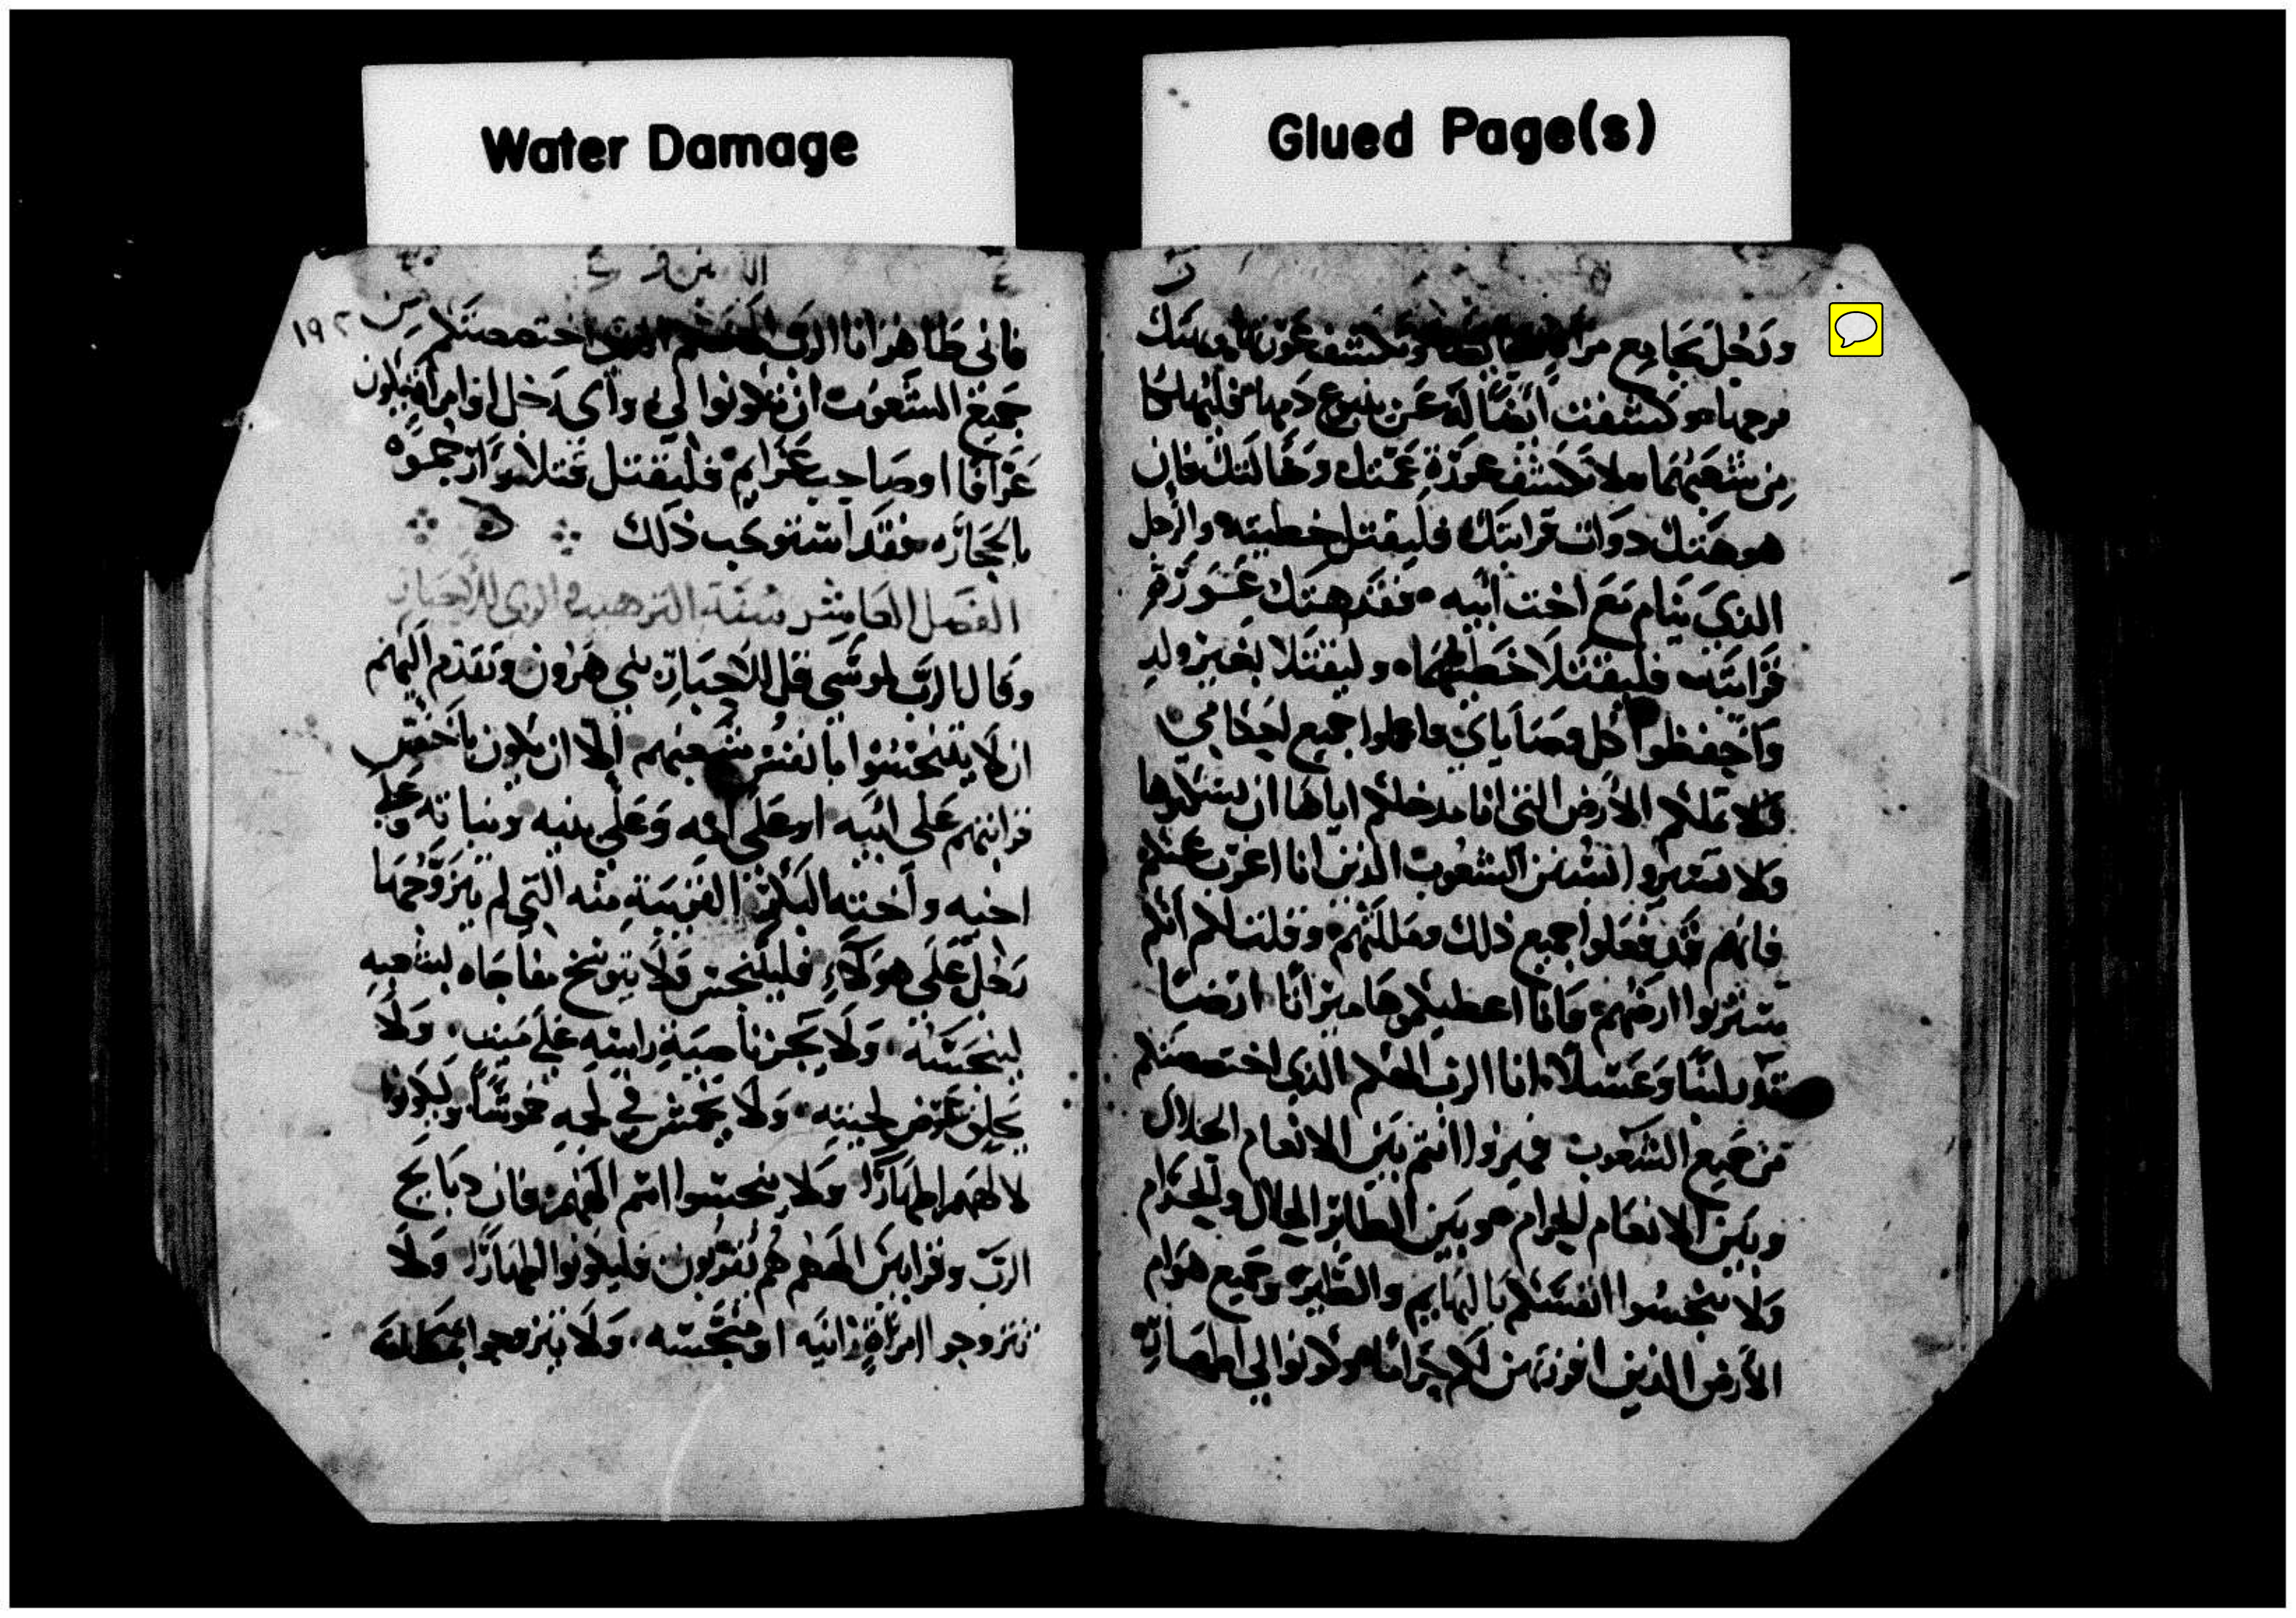 Water Damage
Glued Page(s)
ورجل يجامع
فرجها وكشفت ايضًا له عن ينبوع دمها فليهلكا
من شعبهما ولا تكشف عورة عمتك وخالتك فان
هو هتك دوات قرابتك فليقتل خطيته والرجل
الذي ينام مع اخت ابيه فقد هتك عورة
قرابته فليقتلا خطيهما وليقتلا بغير ولد
واحفظوا كل وصاياي واعملوا جميع احكامي
ولا تملكم الارض التي انا مدخلكم اياها ان تسكنوها
ولا تسيروا بسنن الشعوب الذين انا اعزب عنكم
فانهم قد فعلوا جميع ذلك ومقتهم وقلت لكم انكم
سترثوا ارضهم وانا اعطيكموها ميراثا ارضًا
تدر لبنًا وعسلًا انا الرب الهكم الذي اختصصتكم
من جميع الشعوب فميزوا انتم بين الانعام الحلال
وبين الانعام الحرام وبين الطائر الحلال والحرام
ولا تنجسوا انفسكم بالبهايم والطير وجميع هوام
الارض الذين افرزتهن لكم حرامًا وكونوا لي اطهارا
١٩٢
فاني طاهر انا الرب الهكم الذي اختصصتكم من
جميع الشعوب ان تكونوا لي واي رجل او امراة يكون
عرافا او صاحب عزايم فليقتل قتلا وارجموه
بالحجارة فقد استوجب ذلك
الفصل العاشر سنة الترهيب
وقال الرب لموسى قل للاحبار بني هرون وتقدم اليهم
ان لا يتنجسوا بانفس شعبهم الا ان يكون باخص
قرابتهم على ابيه او على امه وعلى بنيه وبناته وعلى
اخيه واخته البكر القريبة منه التي لم يتزوجها
رجل على هولاء فليتنجس ولا يتوسخ مفاجاه لشعبه
لينجسه ولا يجز ناصية راسه على ميت ولا
يحلق عرض لحيته ولا يخمش في لحمه خموشًا ويكونوا
لالههم اطهارًا ولا ينجسوا اسم الههم فان دبايح
الرب وقرابين الههم هم يقربون فليكونوا اطهارًا ولا
يتزوجوا امراة زانيه او منجسه ولا يتزوجوا بمطلقة